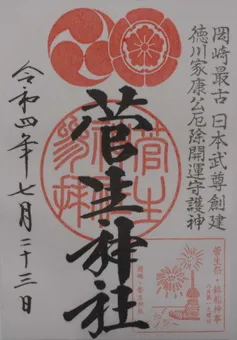 岡崎最古 日本武尊創建
徳川家康公厄除開運守護神
菅生神社
令和四年七月二十三日
菅生祭・鉾船神事